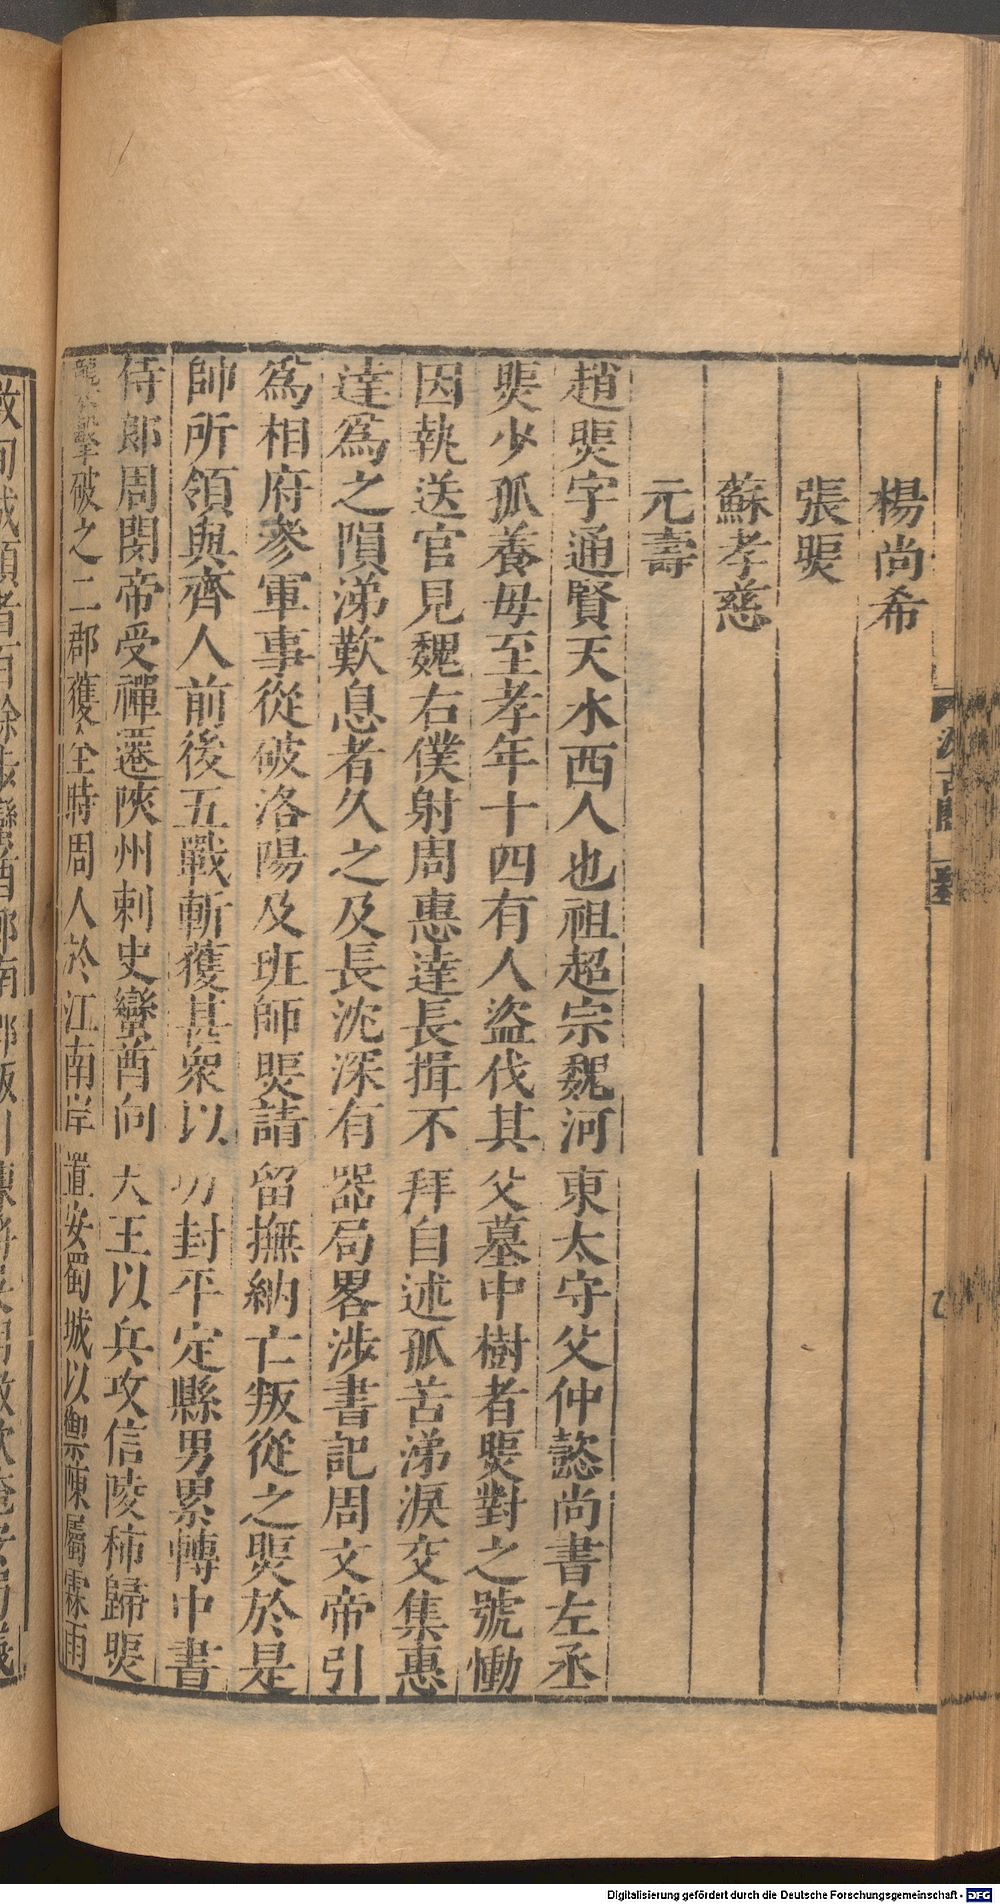 楊尚希
張煚
蘇孝慈
元壽
趙煚字通賢天水西人也祖超宗魏河東太守父仲懿尚書左丞
煚少孤養母至孝年十四有人盜伐其父墓中樹者煚對之號慟
因執送官見魏右僕射周惠達長揖不拜自述孤苦涕淚交集惠
達爲之隕涕歎息者久之及長沈深有器局畧涉書記周文帝引
爲相府參軍事從破洛陽及班師煚請留撫納亡叛從之煚於是
帥所領與齊人前後五戰斬獲甚衆以功封平定縣男累轉中書
侍郎周閔帝受禪遷陝州刺史蠻酋向天王以兵攻信陵秭歸煚
擊破之二郡獲全時周人於江南岸置安蜀城以禦陳屬霖雨
汲古閣
Digitalisierung gefördert durch die Deutsche Forschungsgemeinschaft - DFG